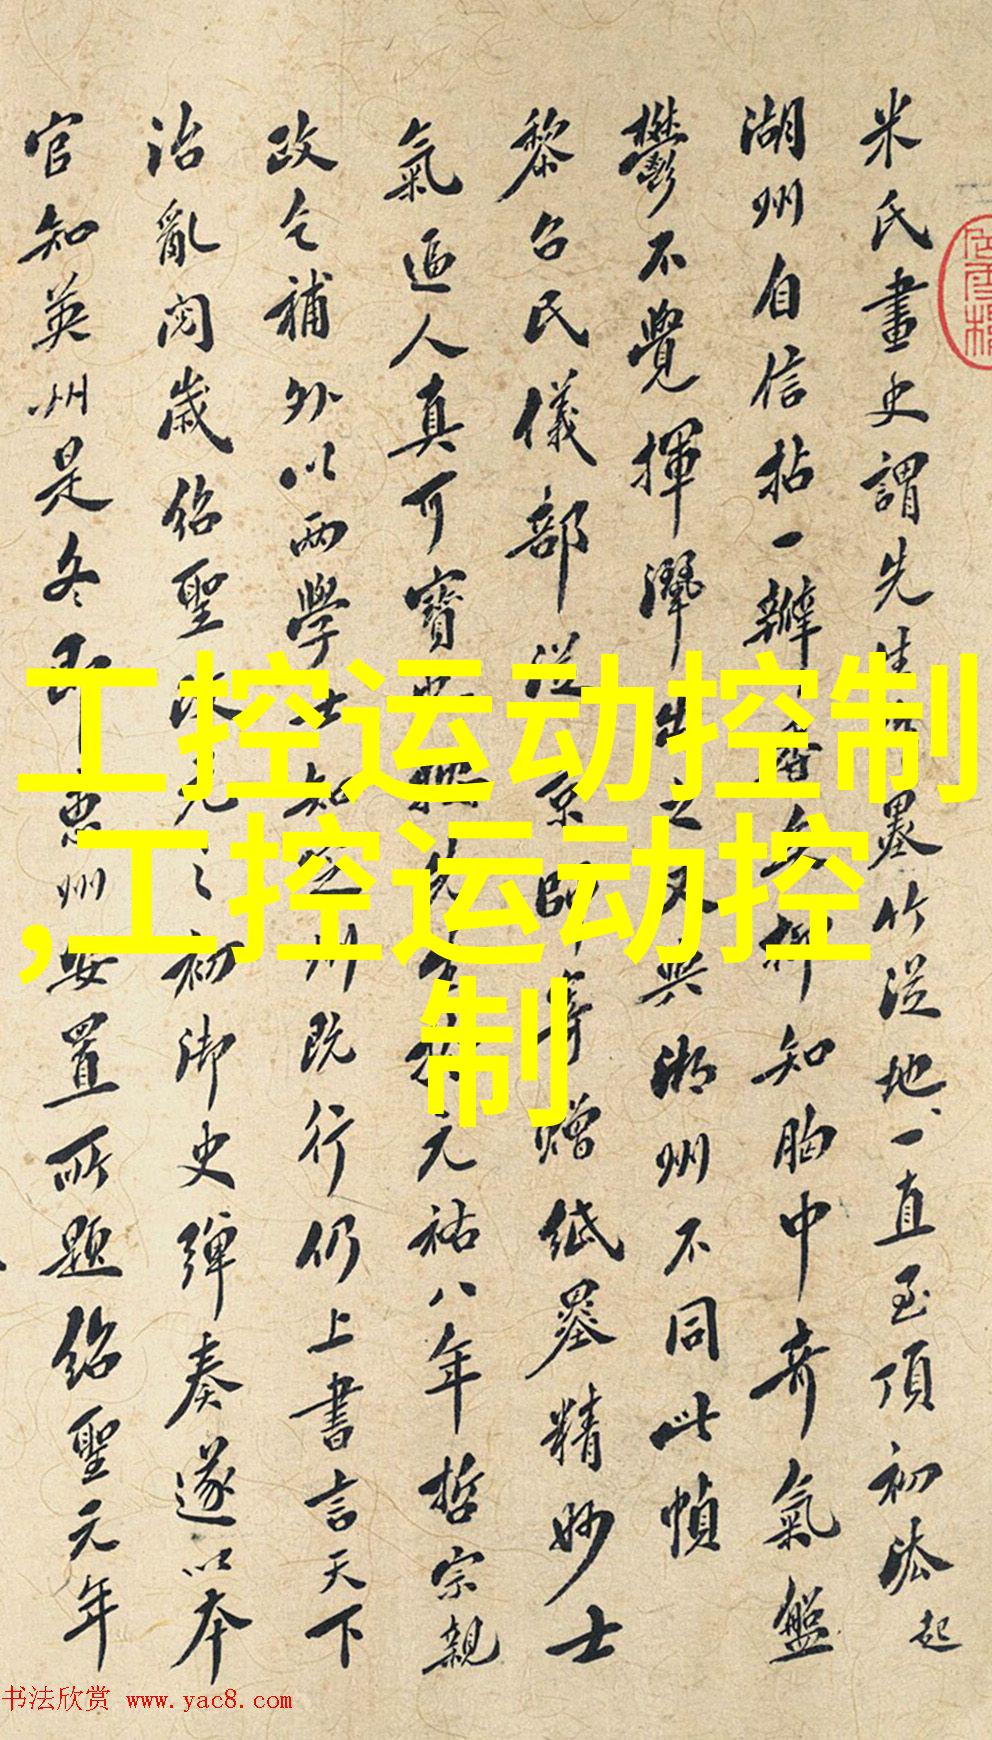 米氏畫史謂先生墨竹從地一直至頂初法起
湖州自信拈一瓣香知胸中奇氣盤
鬱不覺揮灑出之又與湖州不同此幀
黎召民儀部從京師寄贈紙墨精妙士
氣逼人真可寶元祐八年哲宗親
政乞補外以兩學士知定州既行仍上書言天下
治亂閱歲紹聖改元之初御史彈奏遂以本
官知英州是冬即惠州安置所題紹聖元年
工控运动控制
,工控运动控
制
书法欣赏 www.yac8.com